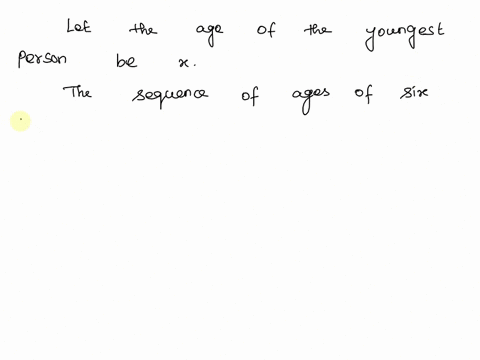 Let the age of the youngest
person be x.
The sequence of ages of six